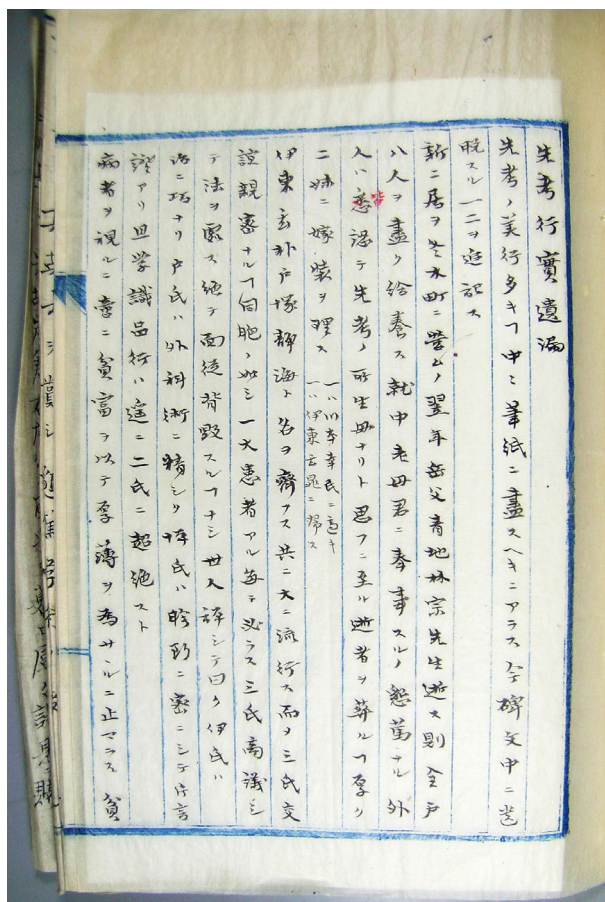 先考行實遺漏
先考ノ美行多キヿ中々筆紙ニ盡スヘキニアラス今碑文中ニ
脱スル一二ヲ追記ス
新ニ居ヲ木町ニ營ムノ翌年岳父青地林宗先生逝ス則全戸
八人ヲ盡ク給養ス就中老母君ニ奉事スルノ懇篤ナル外
人ハ皆誤テ先考ノ所生母ナリト思フニ至ル逝者ヲ葬ルヿ厚ク
二妹ニ嫁裝ヲ理ス
一ハ川本幸民ニ適キ
一ハ伊東玄晁ニ帰ス
伊東玄朴戸塚靜海ト名ヲ齊フス共ニ大ニ流行ス而ヲ三氏交
誼親密ナルヿ同胞ノ如シ一大患者アル毎テ必ラス三氏商議シ
テ法ヲ處ス絶テ面從背毀スルヿナシ世人評シテ曰ク伊氏ハ
治ニ巧ナリ戸氏ハ外科術ニ精シク坪氏ハ診断ニ密ニシテ片言
證アリ且学識品行ハ遙ニ二氏ニ超絶スト
病者ヲ視ルニ啻ニ貧富ヲ以テ厚薄ヲ為サヽルニ止マラス貧